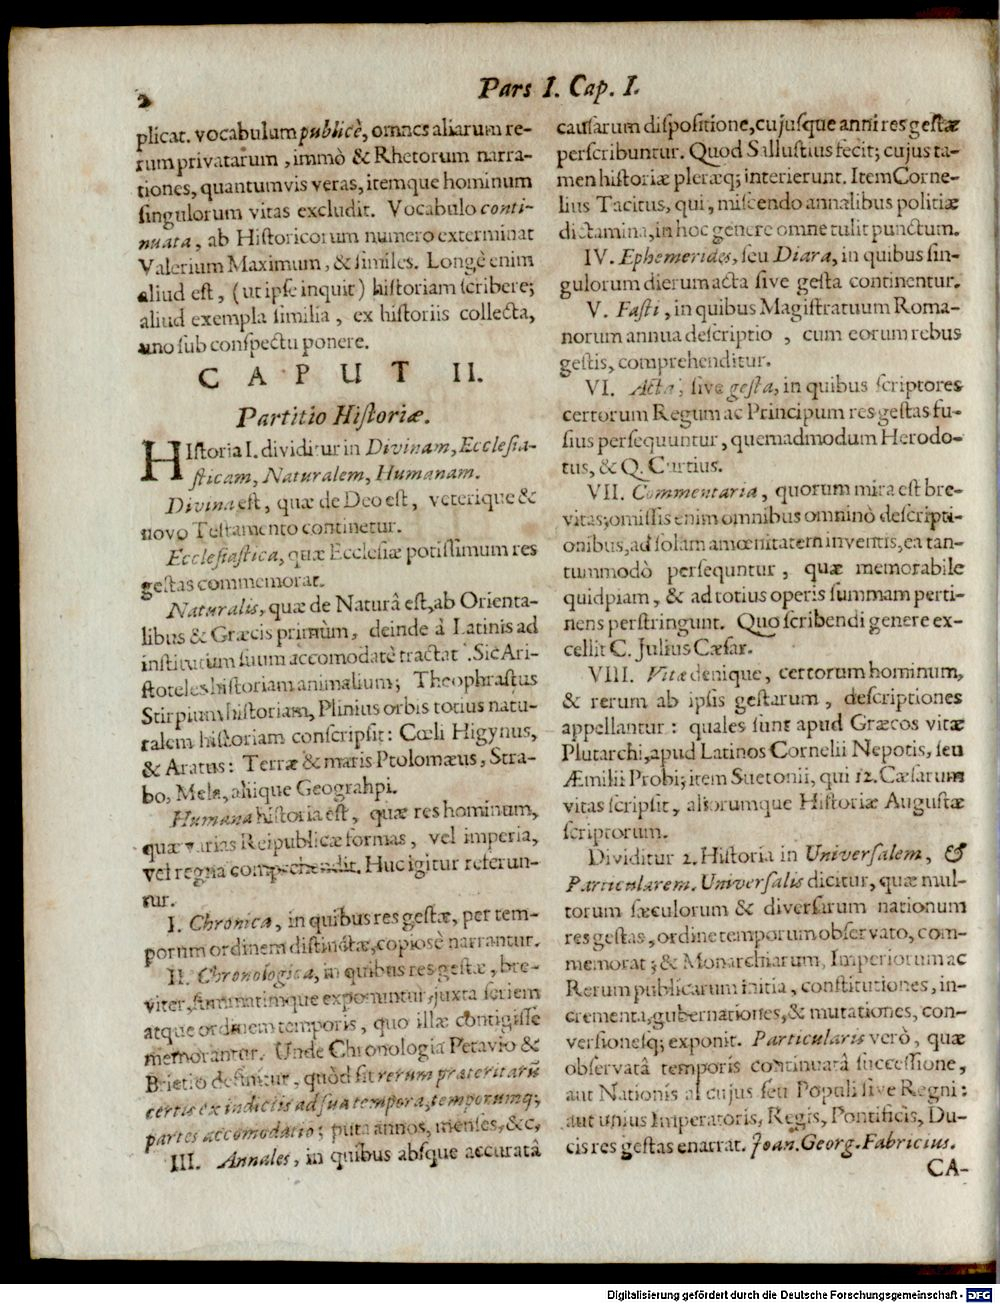 2
Pars I. Cap. I.
plicat. vocabulum publicè, omnes aliarum re-
rum privatarum, immò & Rhetorum narra-
tiones, quantumvis veras, itemque hominum
singulorum vitas excludit. Vocabulo conti-
nuata, ab Historicorum numero exterminat
Valerium Maximum, & similes. Longè enim
aliud est, (ut ipse inquit) historiam scribere;
aliud exempla similia, ex historiis collecta,
uno sub conspectu ponere.
CAPUT II.
Partitio Historiæ.
HIstoria I. dividitur in Divinam, Ecclesia-
sticam, Naturalem, Humanam.
Divina est, quæ de Deo est, veterique &
novo Testamento continetur.
Ecclesiastica, quæ Ecclesiæ potissimum res
gestas commemorat.
Naturalis, quæ de Naturâ est, ab Orienta-
libus & Græcis primùm, deinde à Latinis ad
institutum suum accomodatè tractat. Sic Ari-
stoteles historiam animalium; Theophrastus
Stirpium historiam, Plinius orbis totius natu-
ralem historiam conscripsit: Cœli Higynus,
& Aratus: Terræ & maris Ptolomæus, Stra-
bo, Mela, aliique Geograhpi.
Humana historia est, quæ res hominum,
quæ varias Reipublicæ formas, vel imperia,
vel regna comprehendit. Huc igitur referun-
tur.
I. Chronica, in quibus res gestæ, per tem-
porum ordinem distinctæ, copiosè narrantur.
II. Chronologica, in quibus res gestæ, bre-
viter, summatimque exponuntur, juxta seriem
atque ordinem temporis, quo illæ contigisse
memorantur. Unde Chronologia Petavio &
Brietio definitur, quòd sit rerum præteritarū
certis ex indiciis ad sua tempora, temporumq;
partes accomodatio; puta annos, menses, &c,
III. Annales, in quibus absque accuratâ
causarum dispositione, cujusque anni res gestæ
perscribuntur. Quod Sallustius fecit; cujus ta-
men historiæ pleræq; interierunt. Item Corne-
lius Tacitus, qui, miscendo annalibus politiæ
dictamina, in hoc genere omne tulit punctum.
IV. Ephemerides, seu Diara, in quibus sin-
gulorum dierum acta sive gesta continentur.
V. Fasti, in quibus Magistratuum Roma-
norum annua descriptio, cum eorum rebus
gestis, comprehenditur.
VI. Acta, sive gesta, in quibus scriptores
certorum Regum ac Principum res gestas fu-
sius persequuntur, quemadmodum Herodo-
tus, & Q. Curtius.
VII. Commentaria, quorum mira est bre-
vitas; omissis enim omnibus omninò descripti-
onibus, ad solam amœnitatem inventis, ea tan-
tummodò persequntur, quæ memorabile
quidpiam, & ad totius operis summam perti-
nens perstringunt. Quo scribendi genere ex-
cellit C. Julius Cæsar.
VIII. Vitæ denique, certorum hominum,
& rerum ab ipsis gestarum, descriptiones
appellantur: quales sunt apud Græcos vitæ
Plutarchi, apud Latinos Cornelii Nepotis, seu
Æmilii Probi; item Suetonii, qui 12. Cæsarum
vitas scripsit, aliorumque Historiæ Augustæ
scriptorum.
Dividitur 2. Historia in Universalem, &
Particularem. Universalis dicitur, quæ mul-
torum sæculorum & diversarum nationum
res gestas, ordine temporum observato, com-
memorat; & Monarchiarum, Imperiorum ac
Rerum publicarum initia, constitutiones, in-
crementa, gubernationes, & mutationes, con-
versionesq; exponit. Particularis verò, quæ
observatâ temporis continuatâ successione,
aut Nationis alcujus seu Populi sive Regni:
aut unius Imperatoris, Regis, Pontificis, Du-
cis res gestas enarrat. Joan. Georg. Fabricius.
CA-
Digitalisierung gefördert durch die Deutsche Forschungsgemeinschaft - DFG